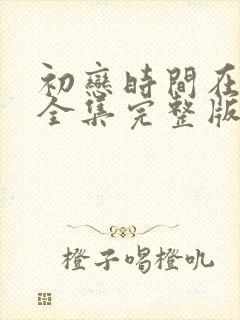 初戀時間在
全集完整版
橙子唱橙吼